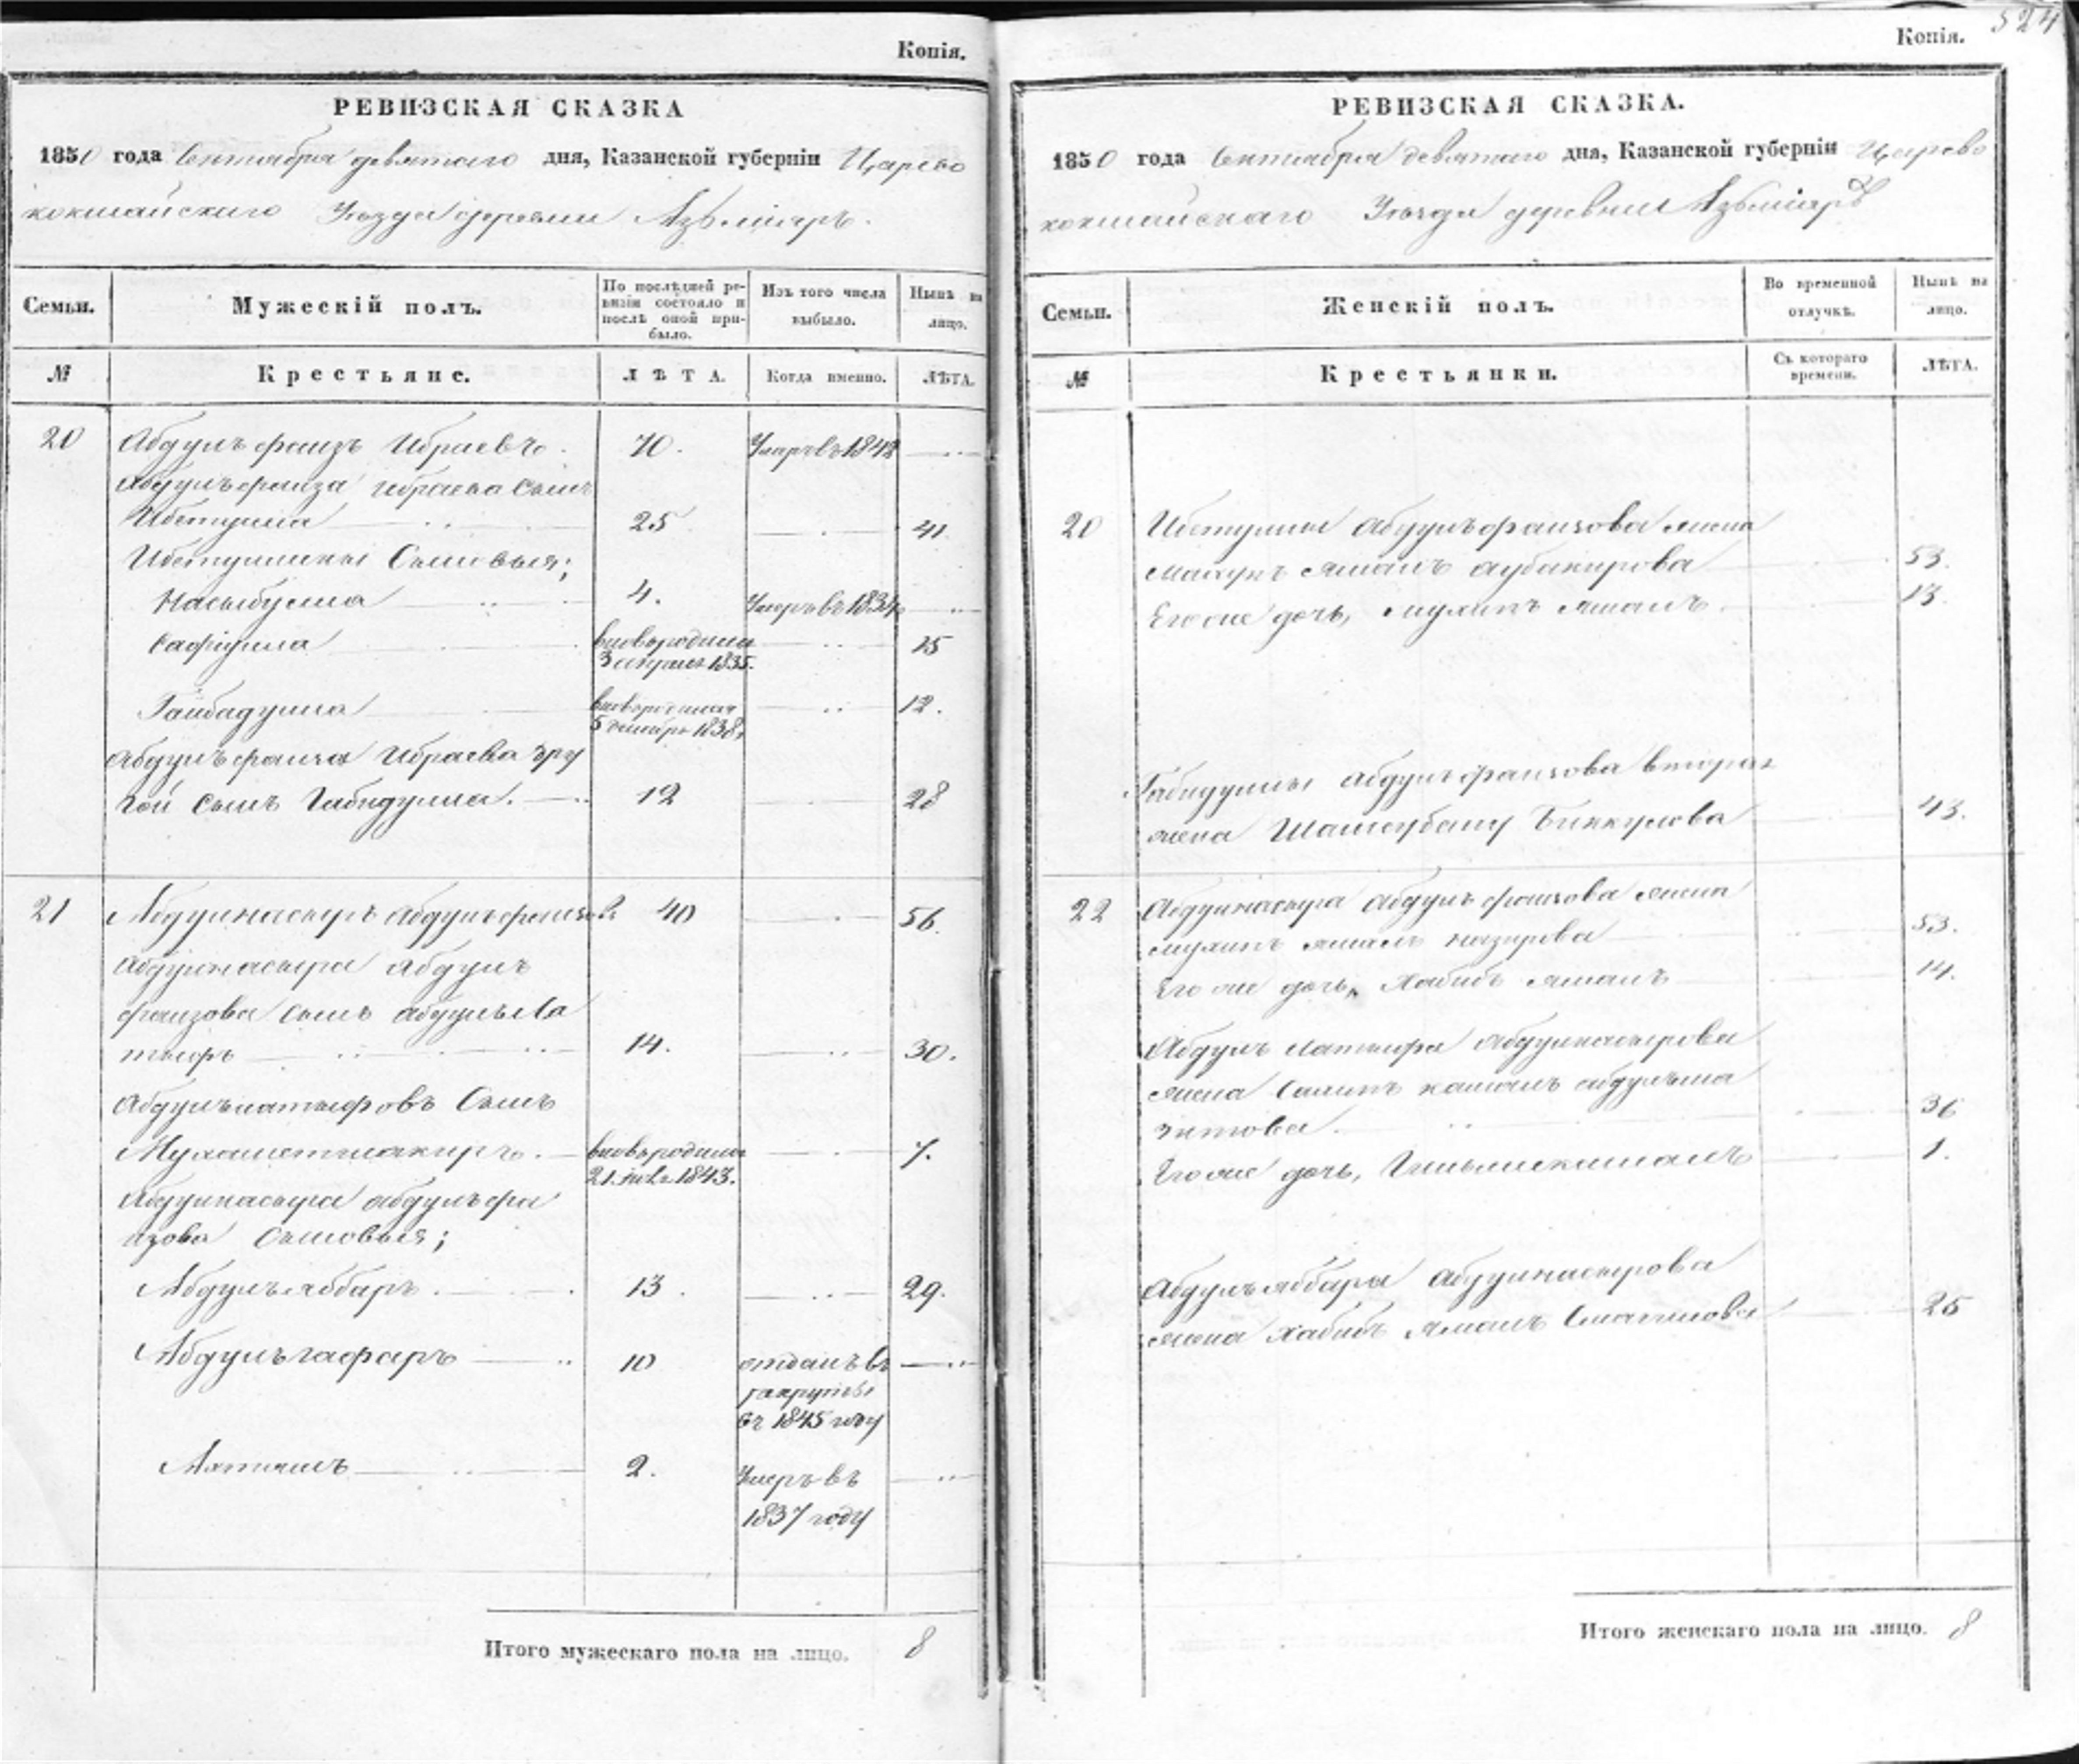 Копія.
РЕВИЗСКАЯ СКАЗКА
1850 года Сентября девятаго дня, Казанской губерніи Царево
кокшайскаго Уѣзда деревни Азъмяръ.
Семьи.
Мужескій полъ.
По послѣдней ре-
визіи состояло и
послѣ оной при-
было.
Изъ того числа
выбыло.
Нынѣ на
лицо.
№
Крестьяне.
ЛѢТА.
Когда именно.
ЛѢТА.
20 Абдулъфаизъ Ибраевъ. 70. Умеръ въ 1842
Абдулъфаиза Ибраева Сынъ
Ибетулла 25 41
Ибетуллины Сыновья;
Насыбулла 4. Умеръ въ 1834
Сафіулла вновьродился 15
3 1835.
Гаибадулла вновьродился 12.
5 декабря 1838
Абдулъфаиза Ибраева дру
гой сынъ Габидулла. 12 28
21 Абдулнасыръ Абдулъфаизовъ 40 56.
Абдулнасыра Абдулъ
фаизова сынъ Абдулъла
тыфъ 14. 30.
Абдулълатыфовъ Сынъ
Мухаметшакиръ. вновьродился 7.
21. 1843.
Абдулнасыра Абдулъфа
изова Сыновья;
Абдулъяббаръ. 13. 29.
Абдулъгафаръ 10 отданъ въ
рекруты
въ 1845 году
2. Умеръ въ
1837 году
Итого мужескаго пола на лицо. 8
Копія. 524
РЕВИЗСКАЯ СКАЗКА.
1850 года Сентября девятаго дня, Казанской губерніи Царево
кокшайскаго Уѣзда деревни Азъмяръ
Семьи.
Женскій полъ.
Во временной
отлучкѣ.
Нынѣ на
лицо.
№
Крестьянки.
Съ котораго
времени.
ЛѢТА.
20 Ибетуллы Абдулъфаизова жена
ямалъ аубакирова 53.
Его же дочь, ямалъ. 13.
Габидуллы Абдулъфаизова вторая
жена Шамсубану Биккулова 43.
22 Абдулнасыра Абдулъфаизова жена
ямалъ назирова 53.
Его же дочь, Хабибъ ямалъ 14.
Абдулъ латыфа Абдулнасырова
жена камалъ
зитова. 36
Его же дочь, 1.
Абдулъяббара Абдулнасырова
жена Хабибъ ямалъ 25
Итого женскаго пола на лицо. 8